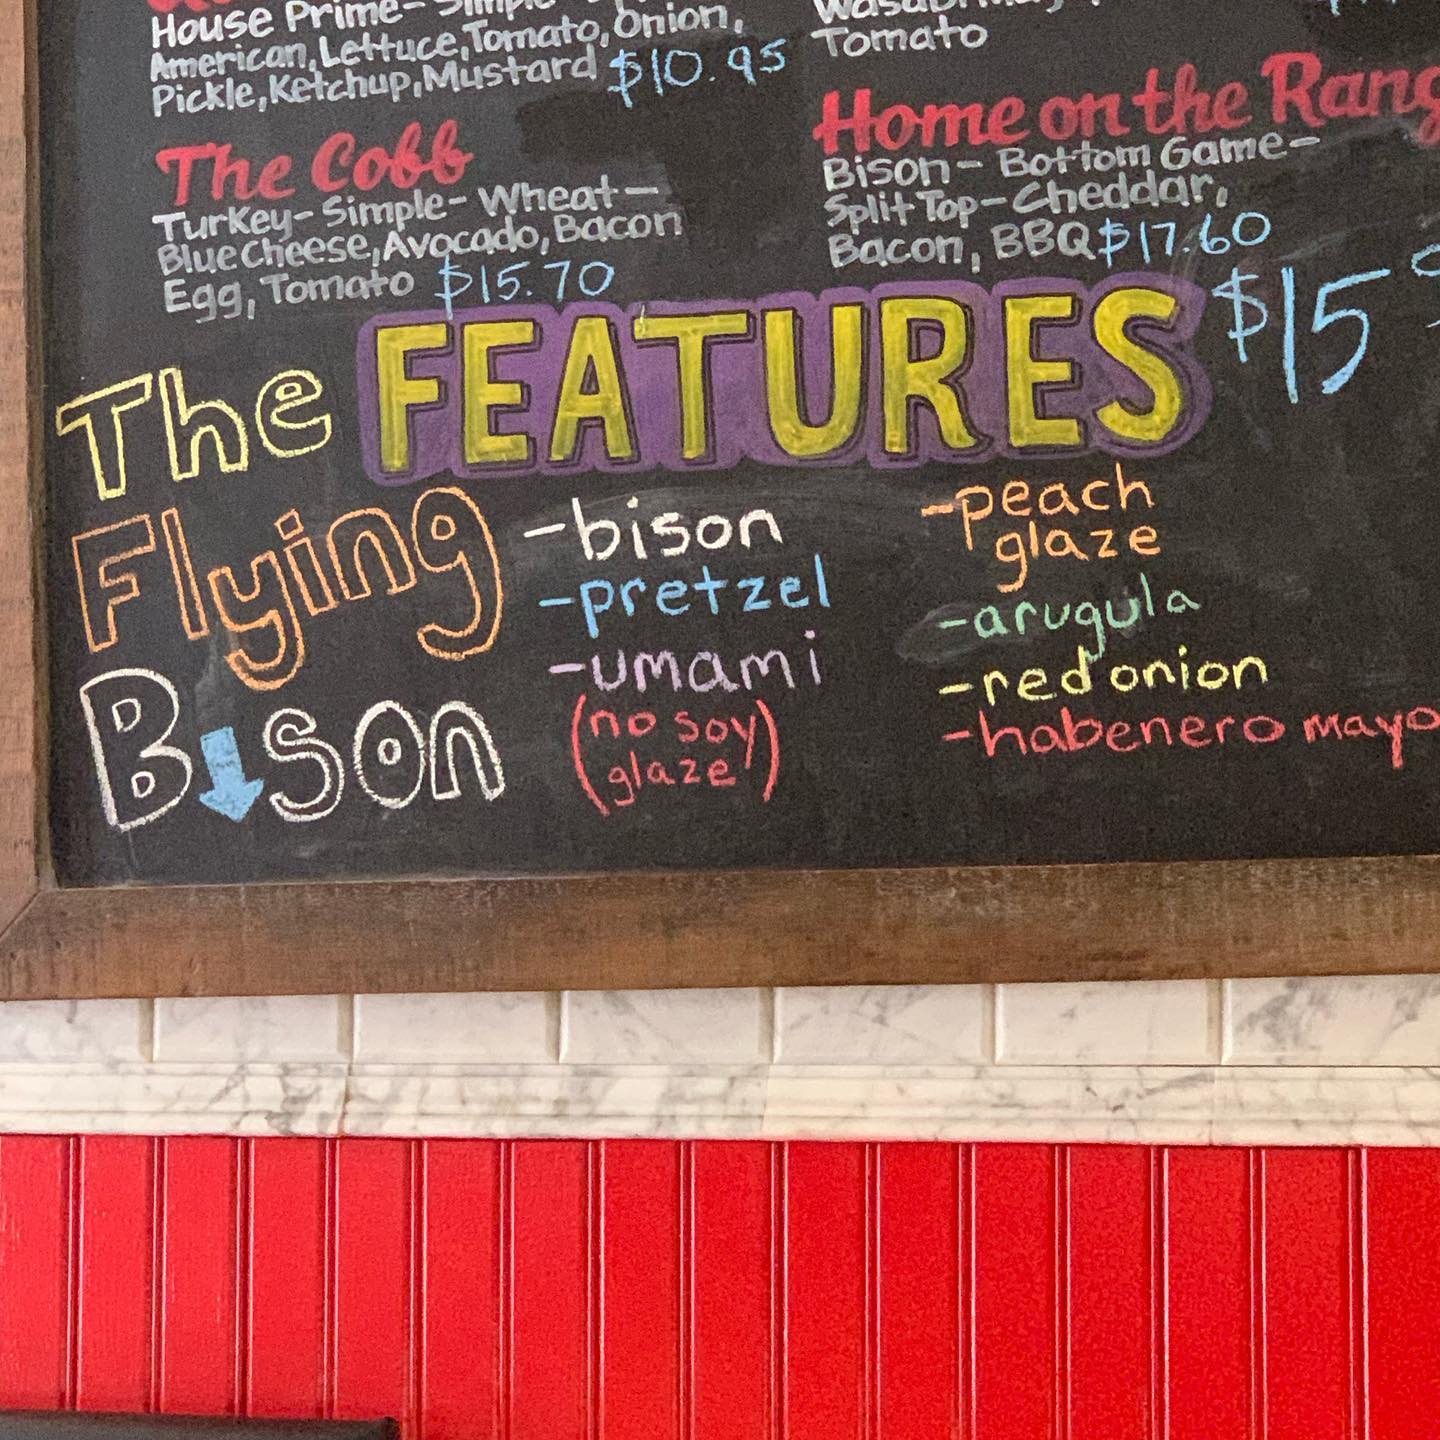 House Prime-
American, Lettuce, Tomato, Onion,
Pickle, Ketchup, Mustard $10.95
The Cobb
Turkey- Simple- Wheat-
Blue Cheese, Avocado, Bacon
Egg, Tomato $15.70
Tomato
Home on the Rang
Bison- Bottom Game-
Split Top- Cheddar,
Bacon, BBQ $17.60
FEATURES $15
The
Flying
Bison
-bison
-pretzel
-umami
(no soy
glaze)
-peach
glaze
-arugula
-red onion
-habenero mayo